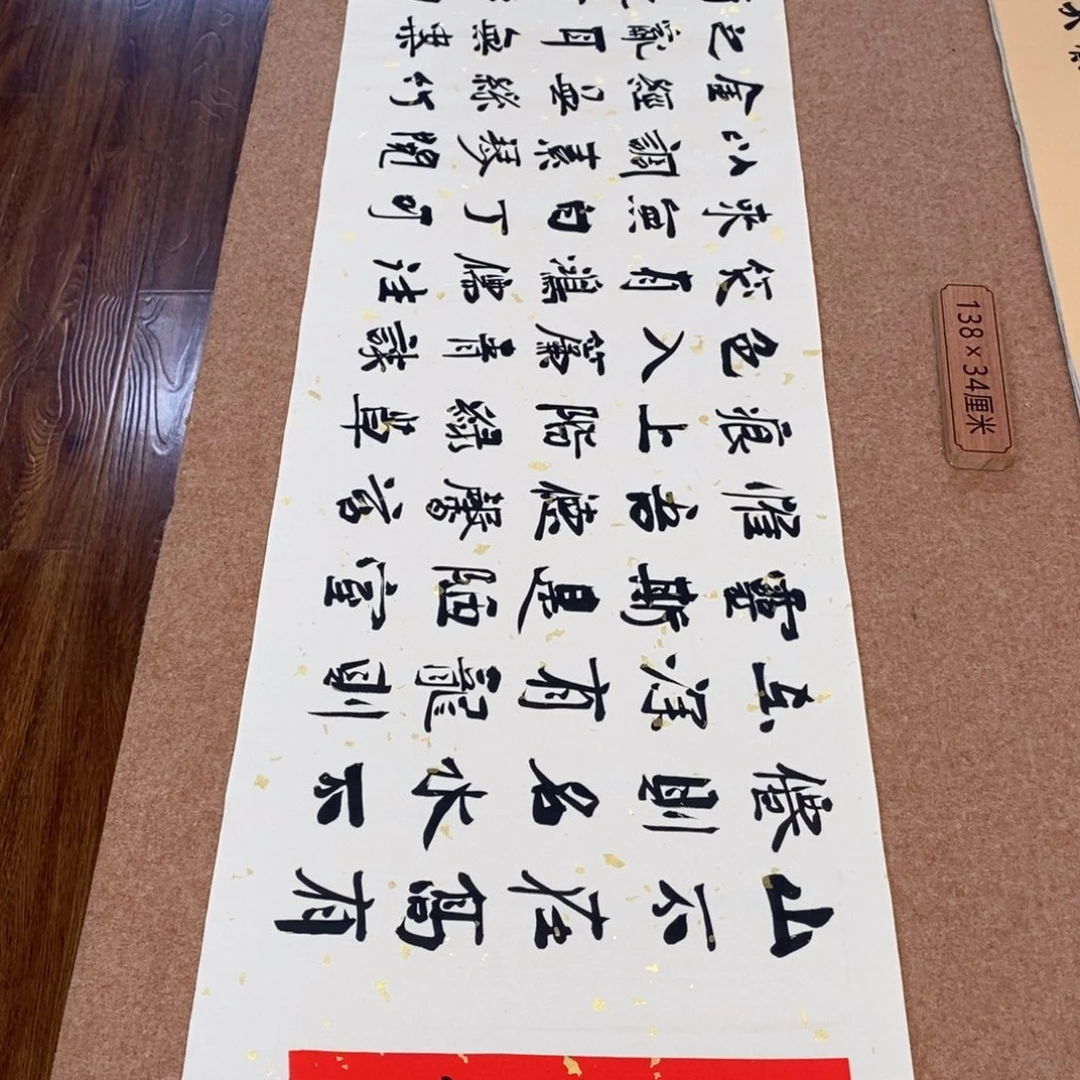 山不在高有
仙則名水不
在深有龍則
靈斯是陋室
惟吾德馨苔
痕上階綠草
色入簾青談
笑有鴻儒往
來無白丁可
以調素琴閱
金經無絲竹
之亂耳無案
138 x 34厘米